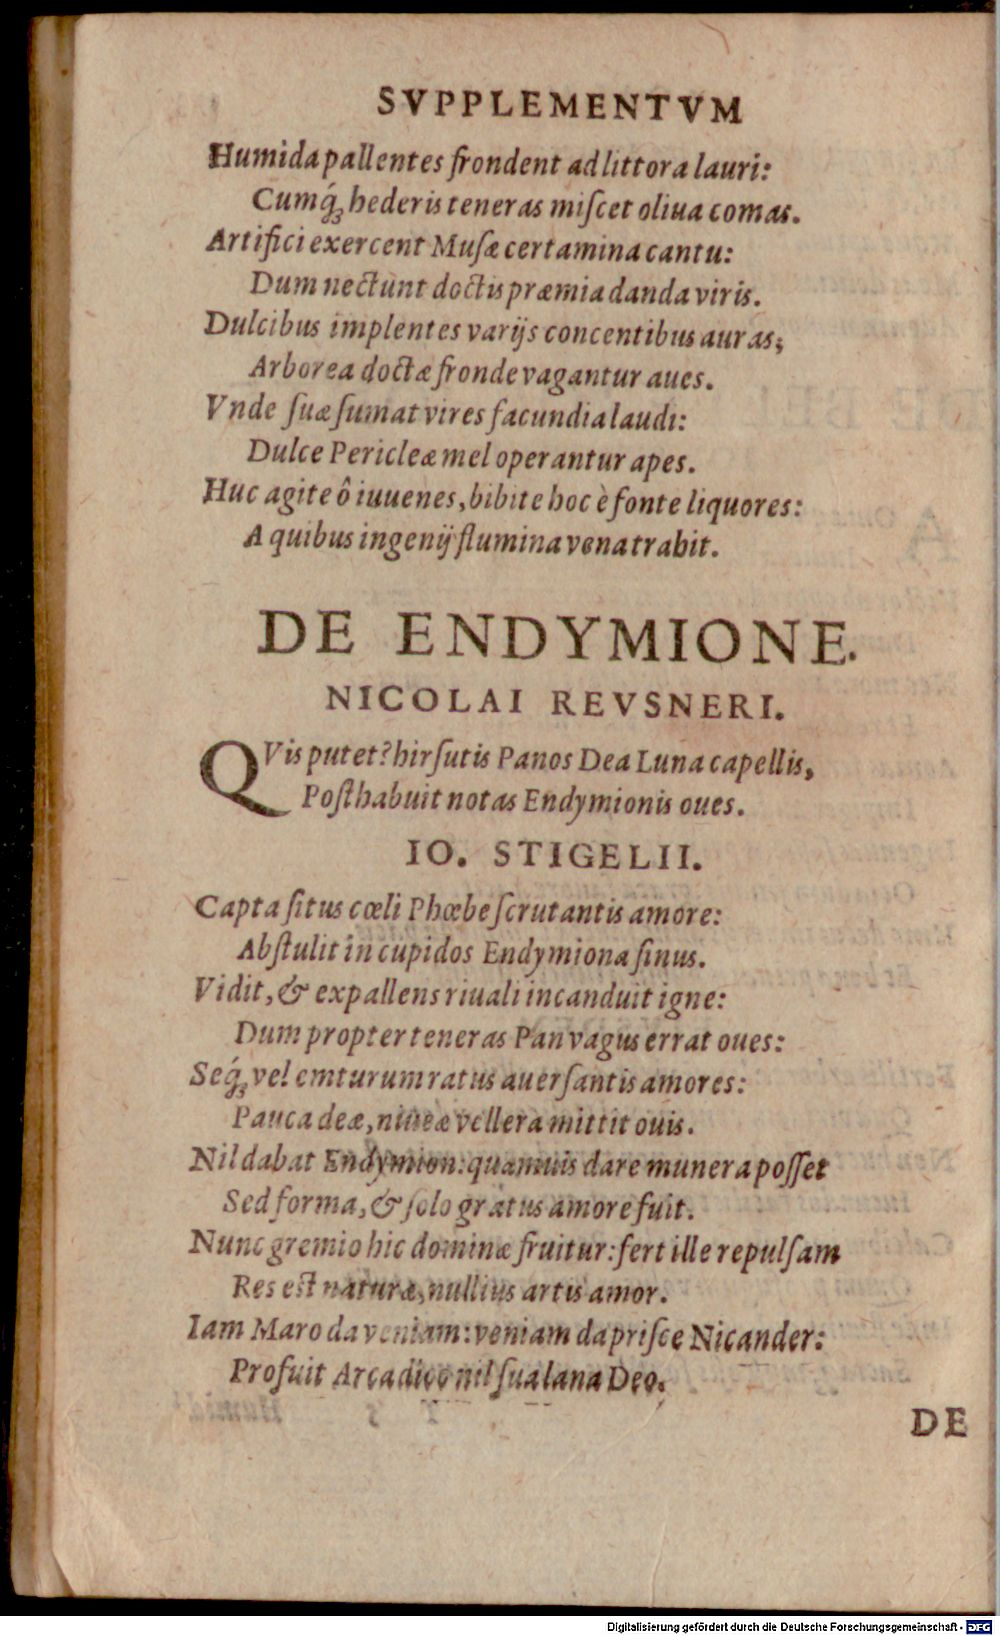 SVPPLEMENTVM
Humida pallentes frondent ad littora lauri:
Cumq́ꝫ hederis teneras miſcet oliua comas.
Artifici exercent Muſæ certamina cantu:
Dum nectunt doctis præmia danda viris.
Dulcibus implentes varijs concentibus auras;
Arborea doctæ fronde vagantur aues.
Vnde ſuæ ſumat vires facundia laudi:
Dulce Pericleæ mel operantur apes.
Huc agite ô iuuenes, bibite hoc è fonte liquores:
A quibus ingenij flumina vena trahit.
DE ENDYMIONE.
NICOLAI REVSNERI.
QVis putet? hirſutis Panos Dea Luna capellis,
Poſthabuit notas Endymionis oues.
IO. STIGELII.
Capta ſitus cœli Phœbe ſcrutantis amore:
Abſtulit in cupidos Endymiona ſinus.
Vidit, & expallens riuali incanduit igne:
Dum propter teneras Pan vagus errat oues:
Seq́ꝫ vel emturum ratus auerſantis amores:
Pauca deæ, niueæ vellera mittit ouis.
Nil dabat Endymion: quamuis dare munera poſſet
Sed forma, & ſolo gratus amore fuit.
Nunc gremio hic dominæ fruitur: fert ille repulſam
Res est naturæ, nullius artis amor.
Iam Maro da veniam: veniam da priſce Nicander:
Profuit Arcadico nil ſua lana Deo.
DE
Digitalisierung gefördert durch die Deutsche Forschungsgemeinschaft - DFG